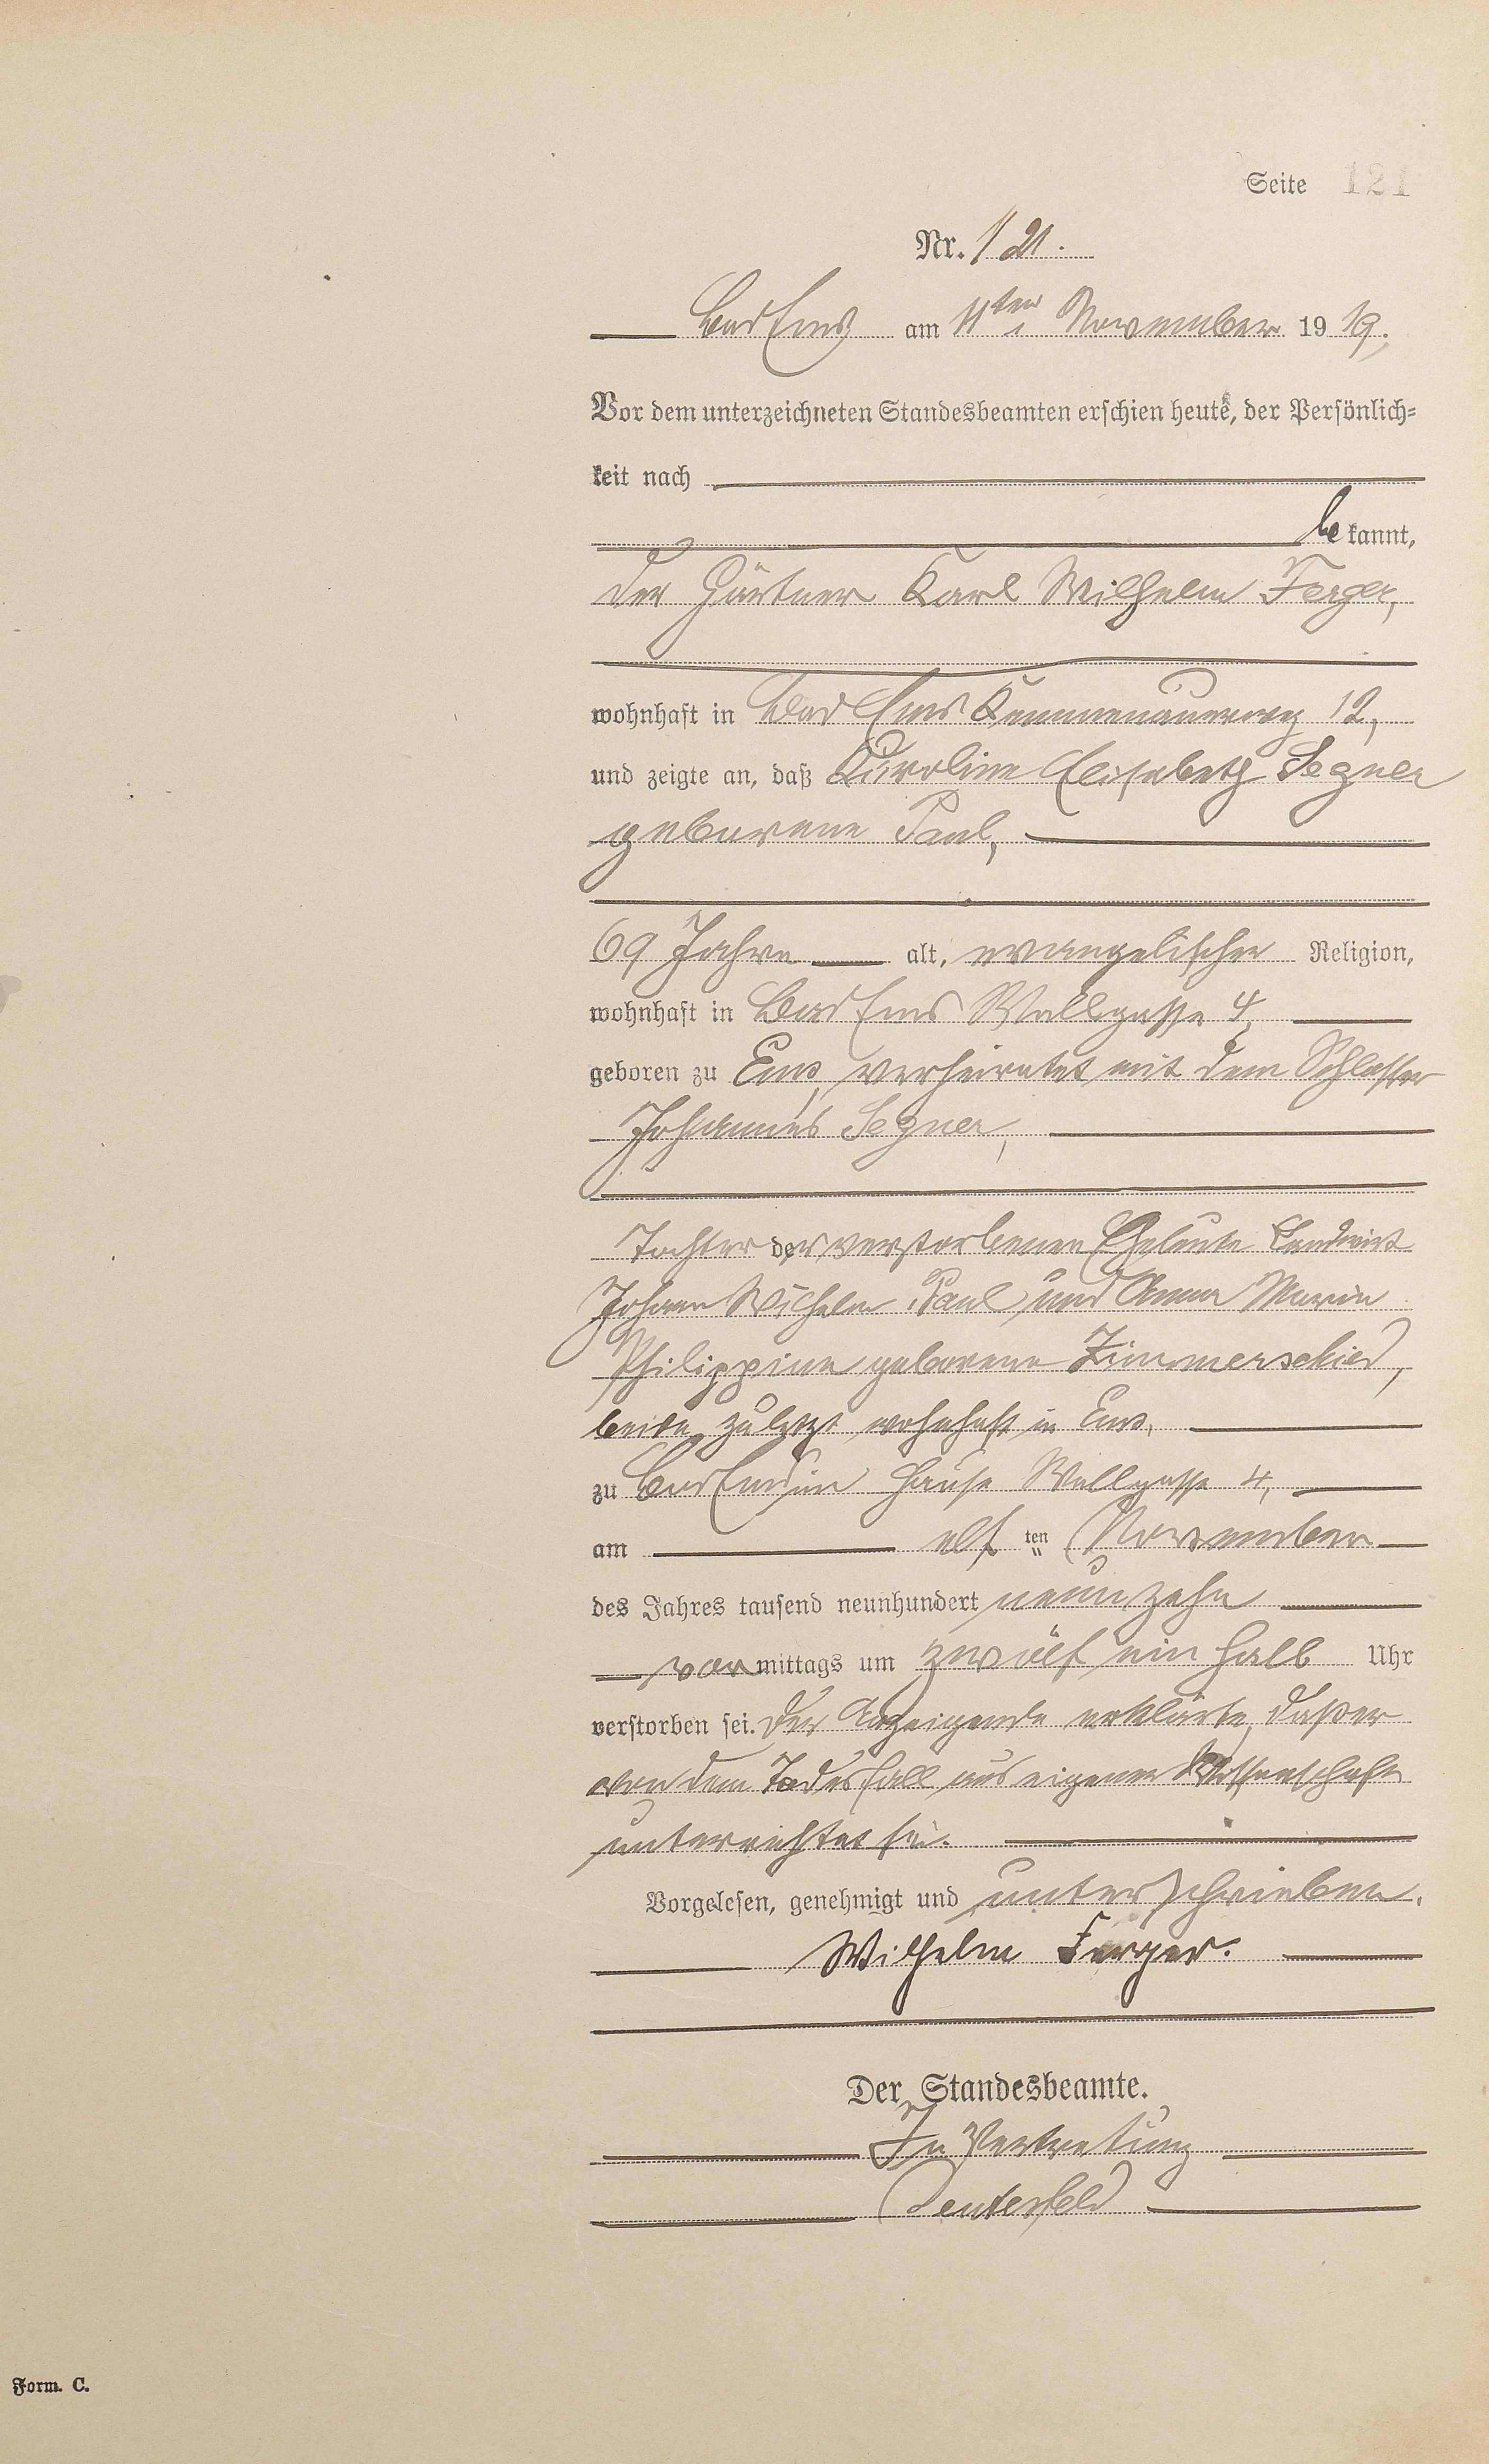 Seite 121
Nr. 121.
Bad Ems am 11ten November 19 19.
Vor dem unterzeichneten Standesbeamten erschien heute, der Persönlich-
keit nach
be kannt,
der Gärtner Karl Wilhelm Ferger,
wohnhaft in Bad Ems Kemmenauerweg 12,
und zeigte an, daß Karoline Elisabeth Segner
geborene Paul,
69 Jahre alt, evangelischer Religion,
wohnhaft in Bad Ems Wallgasse 4,
geboren zu Ems, verheiratet mit dem Schlosser
Johannes Segner,
Tochter der verstorbenen Eheleute Landwirt
Johann Wilhelm Paul und Anna Maria
Philippine geborene Zimmerschied,
beide zuletzt wohnhaft in Ems,
zu Bad Ems im Hause Wallgasse 4,
am elf ten November
des Jahres tausend neunhundert neunzehn
vor mittags um zwölf ein halb Uhr
verstorben sei. Der Anzeigende erklärte, daß er
von dem Todesfall aus eigener Wissenschaft
unterrichtet sei.
Vorgelesen, genehmigt und unterschrieben.
Wilhelm Ferger.
Der Standesbeamte.
In Vertretung
Form. C.